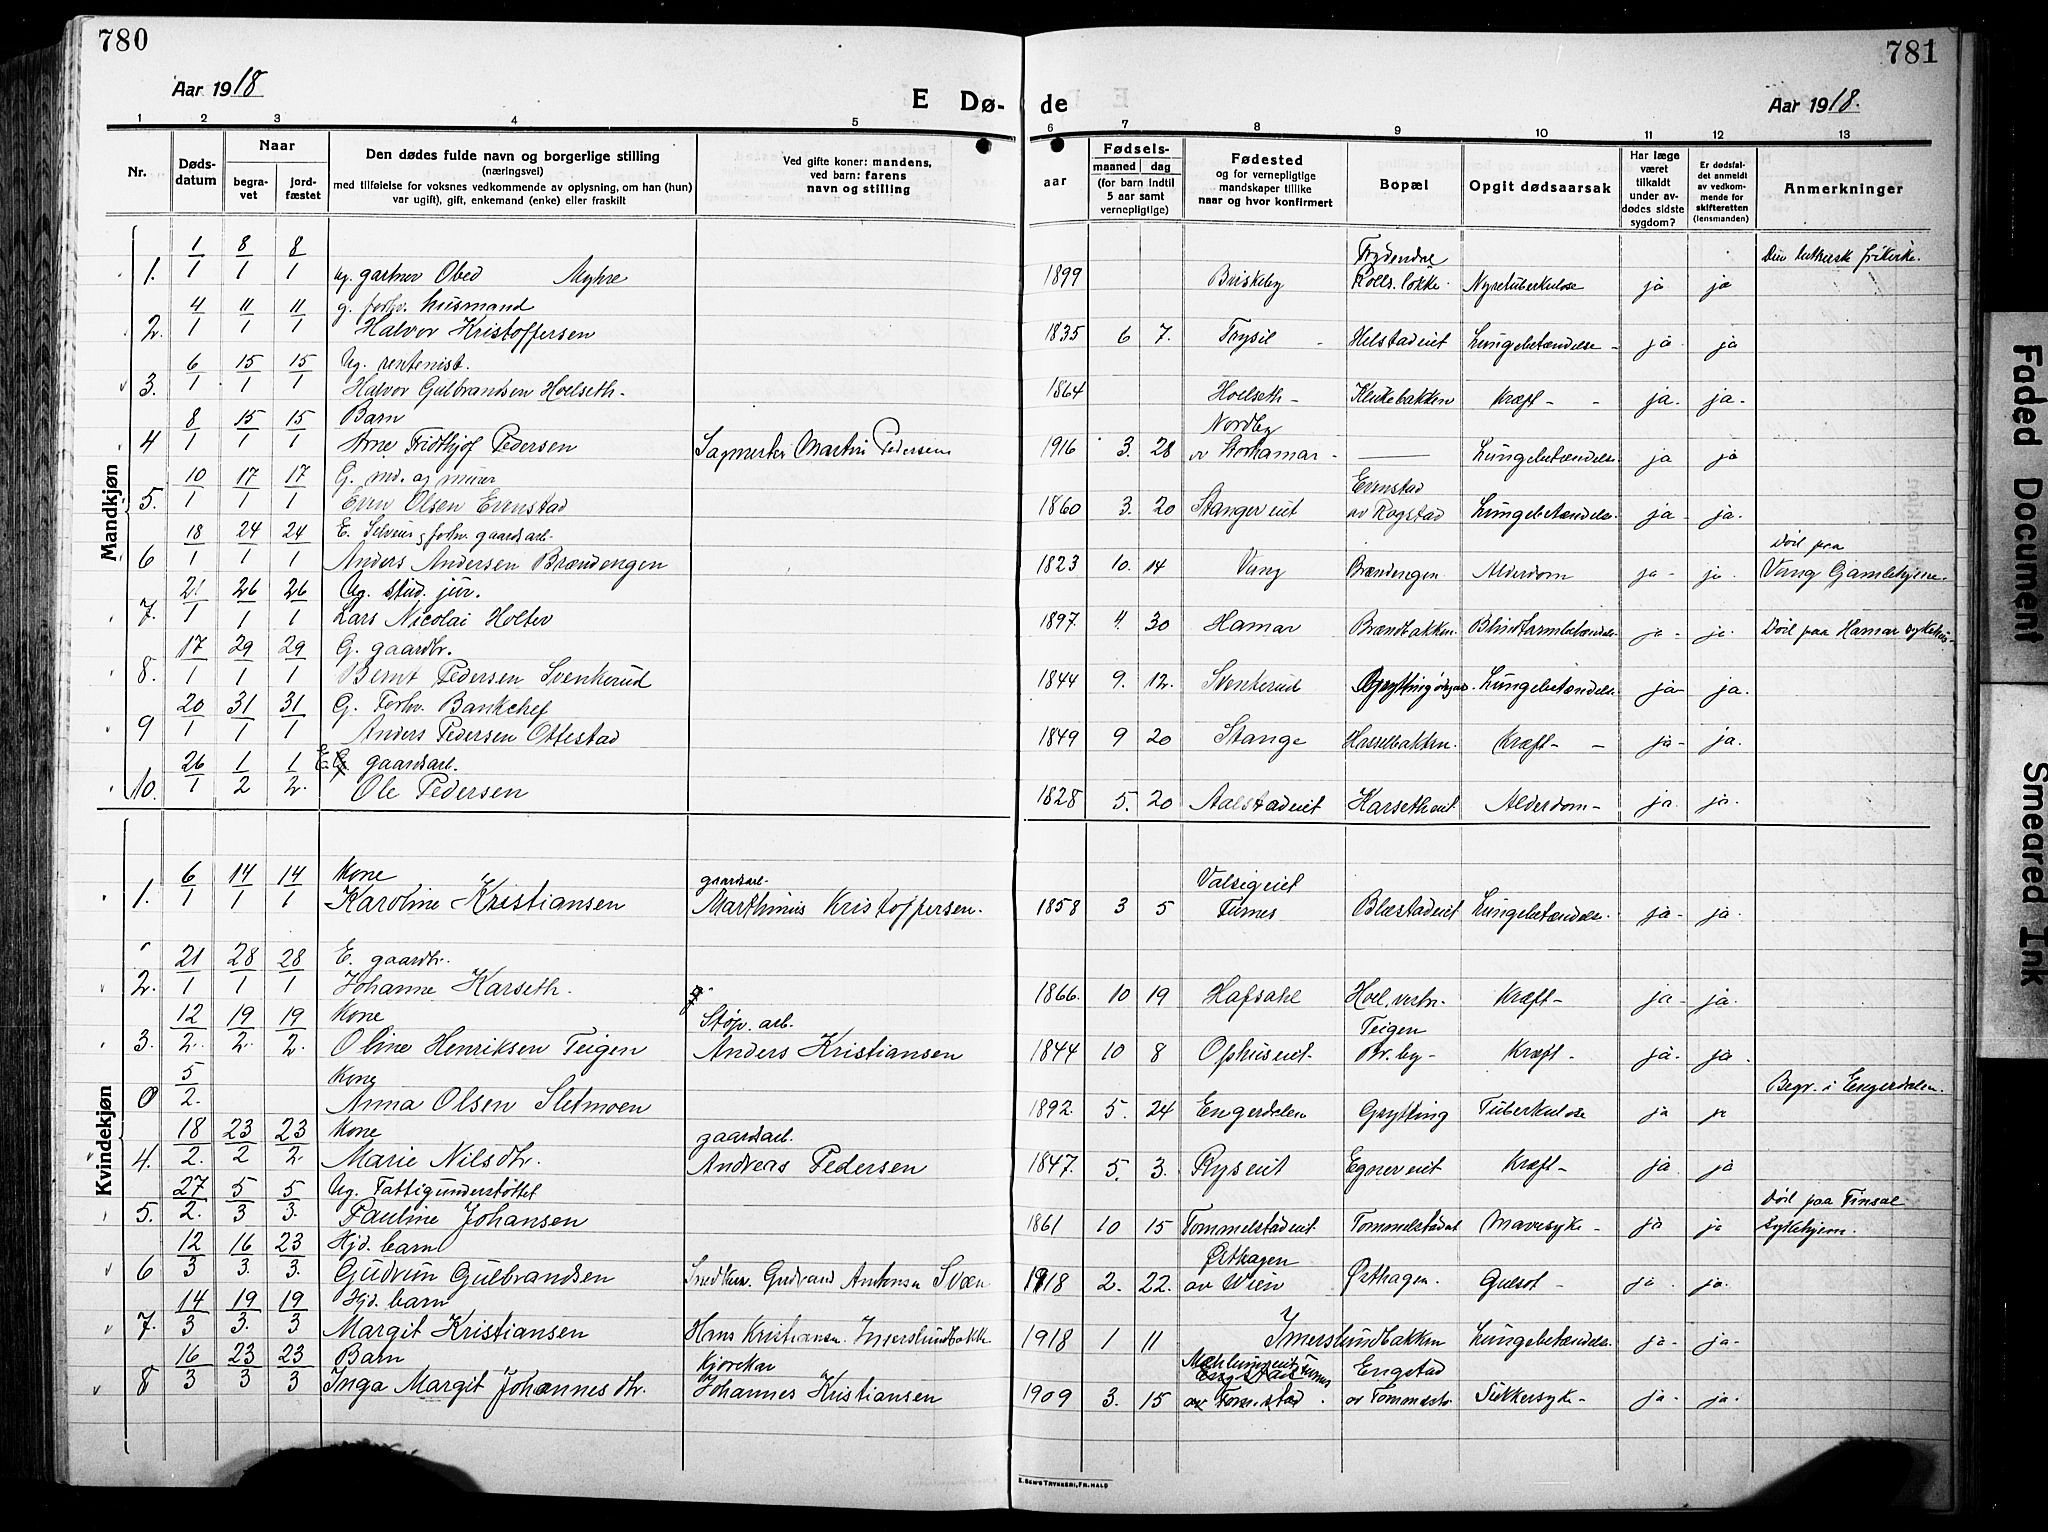 780
781
Aar 1918
E Dø-
de
Aar 1918.
1 2 3 4 5 6 7 8 9 10 11 12 13
Nr.
Døds-
datum
Naar
begra-
vet
jord-
fæstet
Den dødes fulde navn og borgerlige stilling
(næringsvei)
med tilføielse for voksnes vedkommende av oplysning, om han (hun)
var ugift), gift, enkemand (enke) eller fraskilt
Ved gifte koner: mandens,
ved barn: farens
navn og stilling
aar
Fødsels-
maaned dag
(for barn indtil
5 aar samt
vernepligtige)
Fødested
og for vernepligtige
mandskaper tillike
naar og hvor konfirmert
Bopæl
Opgit dødsaarsak
Har læge
været
tilkaldt
under av-
dødes sidste
sygdom?
Er dødsfal-
det anmeldt
av vedkom-
mende for
skifteretten
(lensmanden)
Anmerkninger
Mandkjøn
1/1 8/1 8/1 Frydendal Den lutherske frikirke.
1. ug. gartner Obed Myhre 1899 Briskeby Rolls. løkke. Nyretuberkulose ja ja
4/1 11/1 11/1 g. forhv. husmand
2. Halvor Kristoffersen 1835 6 7. Trysil Helstadeiet Lungebetændelse - ja ja
6/1 15/1 15/1 Ug. rentenist.
3. Halvor Gulbrandsen Hoelseth. 1864 Hoelseth Klukebakken Kræft - ja. ja.
8/1 15/1 15/1 Barn Nordby
4 Arne Fridthjof Pedersen Sagmester Martin Pedersen 1916 3. 28 av Storhamar Lungebetændelse ja ja
10/1 17/1 17/1 G. md. og murer Evenstad
5. Even Olsen Evenstad 1860 3. 20 Stangereiet av Rogstad Lungebetændelse ja ja.
18/1 24/1 24/1 E. Selveier, forhv. gaardsarb. Død paa
6 Anders Andersen Brændengen 1823 10. 14 Vang Brændengen. Alderdom ja ja. Vang Gamlehjem.
21/1 26/1 26/1 Ug. stud. jur.
7. Lars Nicolai Holter 1897 4. 30 Hamar Brændbakken. Blindtarmbetændelse ja ja. Død paa Hamar sykehus
17/1 29/1 29/1 G. gaardbr.
8. Bernt Pedersen Svenkerud 1844 9. 12. Svenkerud Lungebetændelse ja ja.
20/1 31/1 31/1 G. Forhv. Bankchef
9 Anders Pedersen Ottestad 1849 9 20 Stange Hasselbakken. Kræft - ja ja.
26/1 1/2 1/2. E. gaardsarb.
10. Ole Pedersen 1828 5. 20 Aalstadeiet Karsetheiet Alderdom - ja. ja.
Kvindekjøn
6/1 14/1 14/1 Kone gaardsarb. Valsigeiet
1. Karoline Kristiansen Marthinus Kristoffersen. 1858 3 5 Furnes Blæstadeiet Lungebetændelse. ja ja.
21/1 28/1 28/1 E. gaardbr.
2. Johanne Karseth. 1866. 10 19 Hafsahl Hoel, vestre. Kræft - ja ja.
12/2. 19/2. 19/2. Kone Støp. arb. Teigen
3. Oline Henriksen Teigen Anders Kristiansen 1844 10 8 Ophuseiet. Br. by - Kræft - ja. ja
5/2. Kone Begr. i Engerdalen.
0 Anna Olsen Sletmoen 1892. 5. 24 Engerdalen Grytting Tuberkulose ja ja
18/2. 23/2 23/2 Kone gaardsarb.
4. Marie Nilsdtr. Andreas Pedersen 1847. 5. 3. Ryseiet Egnereiet Kræft - ja ja
27/2. 5/3 5/3. Ug. Fattigunderstøttet Død paa Finsal
5. Pauline Johansen 1861 10 15 Tommelstadeiet Tommelstadeiet Mavesyke - ja ja sykehjem.
12/3 16/3. 23/3. Hjd. barn Ørthagen
6 Gudrun Gulbrandsen Snedker. Gudrand Antonsen Svæn 1918 2. 22. av Wien Ørthagen. Gulsot - ja ja.
14/3 19/3. 19/3 Hjd. barn
7. Margit Kristiansen Hans Kristiansen. Imerslundbakk. 1918 1 11 Imerslundbakken Lungebetændelse. ja ja
16/3 23/3 23/3 Barn Kjørekar Mæhlumeiet Furnes Engstad
8 Inga Margit Johannesdtr. Johannes Kristiansen 1909 3. 15 av Tommelstad Sukkersyke - ja ja.
E. SEM'S TRYKKERI, FR.HALD
Faded Document
Smeared Ink